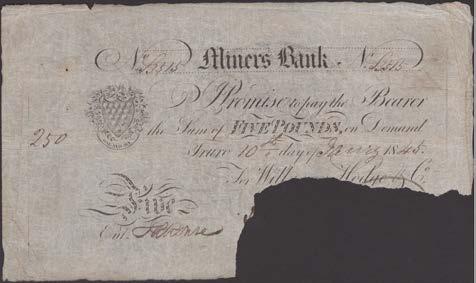 No. Miners Bank. No.
I Promise to pay the Bearer
250
the Sum of FIVE POUNDS, on Demand
Truro 10th day of 1845.
For Will Hodge & Co.
Five
Ent.